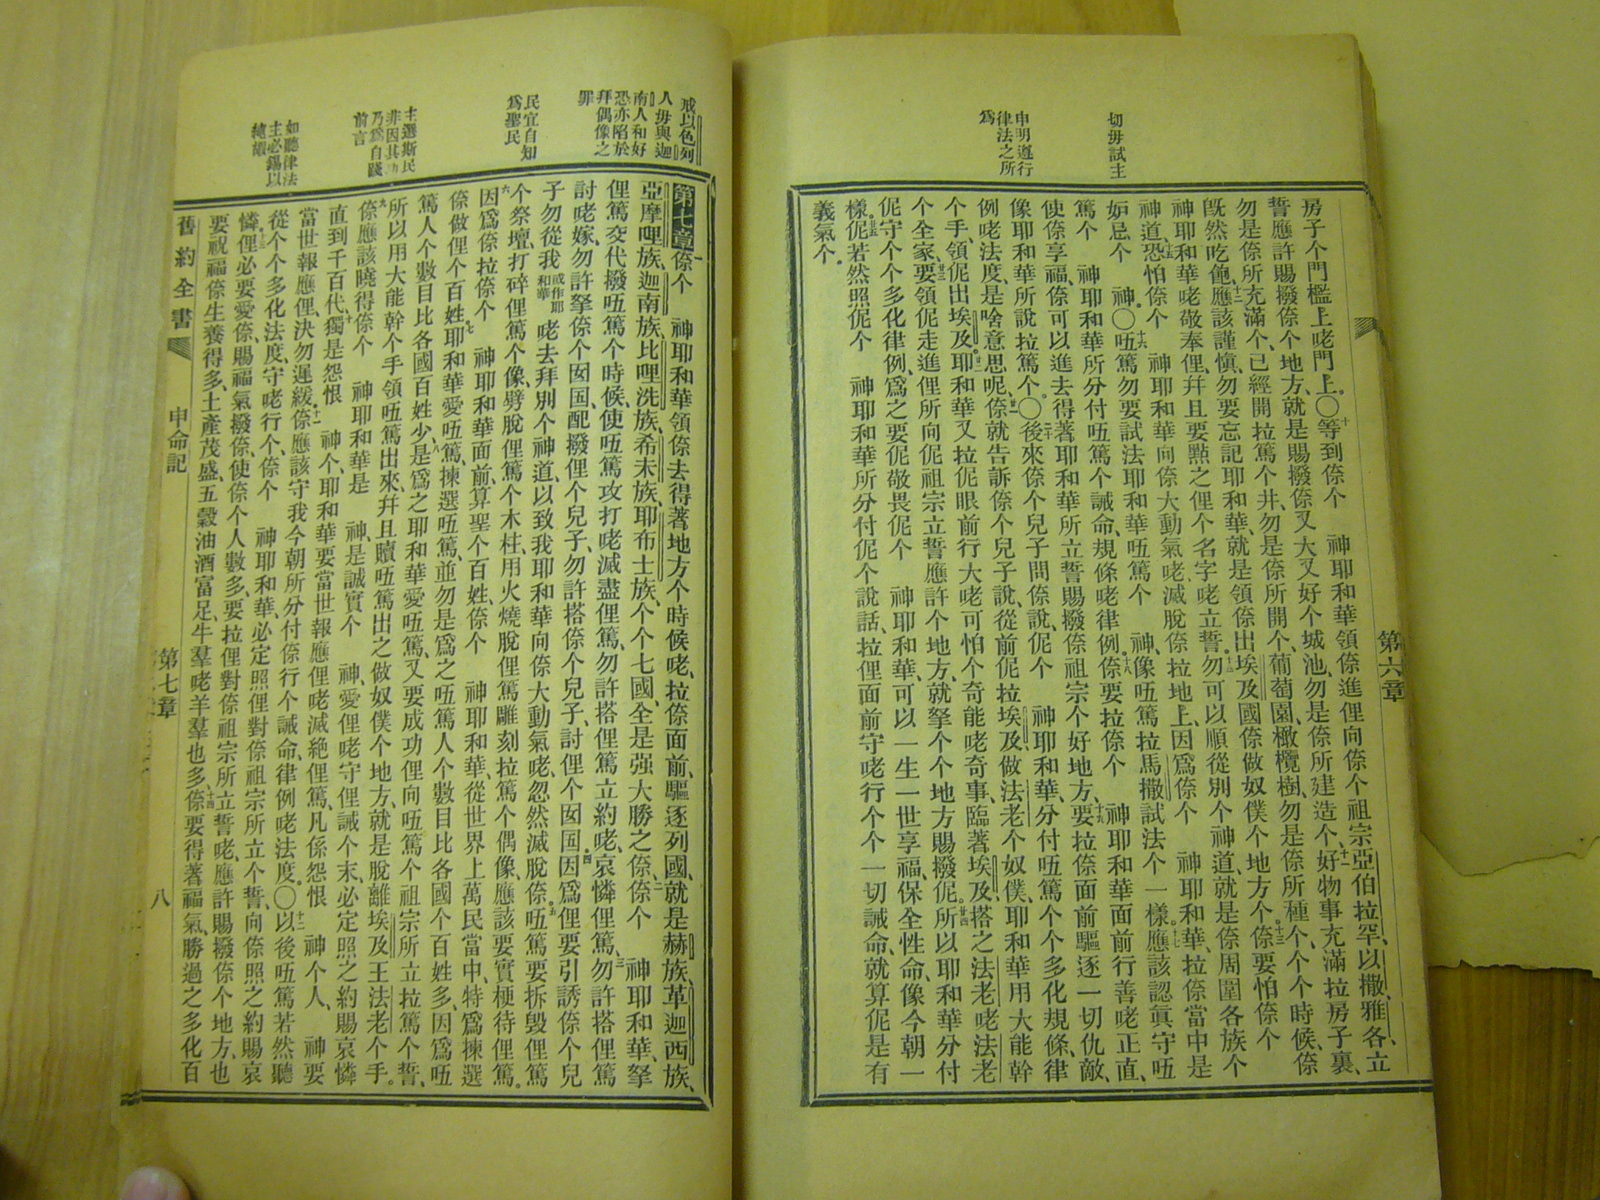 切毋試主
申明遵行
律法之所
爲
第六章
房子个門檻上咾門上、〇等到㑚个 神耶和華領㑚進俚向㑚个祖宗亞伯拉罕、以撒、雅各、立
誓應許賜撥㑚个地方、就是賜撥㑚又大又好个城池、勿是㑚所建造个、好物事充滿拉房子裏、
勿是㑚所充滿个、已經開拉篤个井、勿是㑚所開个、葡萄園、橄欖樹、勿是㑚所種个、个个時候、㑚
旣然吃飽、應該謹愼、勿要忘記耶和華、就是領㑚出埃及國㑚做奴僕个地方个、㑚要怕㑚个
神耶和華咾敬奉俚、幷且要點之俚个名字咾立誓、勿可以順從別个神道、就是㑚周圍各族个
神道、恐怕㑚个 神耶和華向㑚大動氣咾滅脫㑚拉地上、因爲㑚个 神耶和華、拉㑚當中是
妒忌个 神。〇㕶篤勿要試法耶和華㕶篤个 神、像㕶篤拉馬撒試法个一樣。應該認眞守㕶
篤个 神耶和華所分付㕶篤个誡命、規條咾律例、㑚要拉㑚个 神耶和華面前行善咾正直、
使㑚享福、㑚可以進去得著耶和華所立誓賜撥㑚祖宗个好地方、要拉㑚面前驅逐一切仇敵、
像耶和華所說拉篤个。〇後來㑚个兒子問㑚說、伲个 神耶和華、分付㕶篤个个多化規條、律
例咾法度、是啥意思呢、㑚就告訴㑚个兒子說、從前伲拉埃及、做法老个奴僕、耶和華用大能幹
个手、領伲出埃及、耶和華又拉伲眼前行大咾可怕个奇能咾奇事、臨著埃及、搭之法老咾法老
个全家、要領伲走進俚所向伲祖宗立誓應許个地方、就拏个个地方賜撥伲。所以耶和華分付
伲守个个多化律例、爲之要伲敬畏伲个 神耶和華、可以一生一世享福、保全性命、像今朝一
樣。伲若然照伲个 神耶和華所分付伲个說話、拉俚面前守咾行个个一切誡命、就算伲是有
義氣个。
戒以色列
人毋與迦
南人和好
恐亦陷於
拜偶像之
罪
民宜自知
爲聖民
主選斯民
非因其功
乃爲自踐
前言
如聽律法
主必錫以
純嘏
第七章 㑚个 神耶和華領㑚去得著地方个時候咾、拉㑚面前、驅逐列國、就是赫族、革迦西族、
亞摩哩族、迦南族、比哩洗族、希未族、耶布士族、个个七國、全是强大勝之㑚、㑚个 神耶和華、拏
俚篤交代撥㕶篤个時候、使㕶篤攻打咾滅盡俚篤、勿許搭俚篤立約咾、哀憐俚篤、勿許搭俚篤
討咾嫁、勿許拏㑚个囡囯、配撥俚个兒子、勿許搭㑚个兒子、討俚个囡囯、因爲俚要引誘㑚个兒
子勿從我或作耶和華咾去拜別个神道、以致我耶和華向㑚大動氣咾、忽然滅脫㑚。㕶篤要拆毀俚篤
个祭壇、打碎俚篤个像、劈脫俚篤个木柱、用火燒脫俚篤雕刻拉篤个偶像、應該要實梗待俚篤。
因爲㑚拉㑚个 神耶和華面前、算聖个百姓、㑚个 神耶和華、從世界上萬民當中、特爲揀選
㑚做俚个百姓。耶和華愛㕶篤、揀選㕶篤、並勿是爲之㕶篤人个數目比各國个百姓多、因爲㕶
篤人个數目比各國百姓少、是爲之耶和華愛㕶篤、又要成功俚向㕶篤个祖宗所立拉篤个誓、
所以用大能幹个手、領㕶篤出來、幷且贖㕶篤出之做奴僕个地方、就是脫離埃及王法老个手。
㑚應該曉得㑚个 神耶和華是 神、是誠實个 神、愛俚咾守俚誡个末、必定照之約賜哀憐
直到千百代、獨是怨恨 神个、耶和華要當世報應俚咾滅絶俚篤、凡係怨恨 神个人、 神要
當世報應俚、決勿遲緩、㑚應該守我今朝所分付㑚行个誡命、律例咾法度。〇以後㕶篤若然聽
從个个多化法度、守咾行个、㑚个 神耶和華、必定照俚對㑚祖宗所立个誓、向㑚照之約賜哀
憐、俚必要愛㑚、賜福氣撥㑚、使㑚个人數多、要拉俚對㑚祖宗所立誓咾、應許賜撥㑚个地方、也
要祝福㑚生養得多、土產茂盛、五穀油酒富足、牛羣咾羊羣也多。㑚要得著福氣、勝過之多化百
舊約全書 申命記 第七章 八